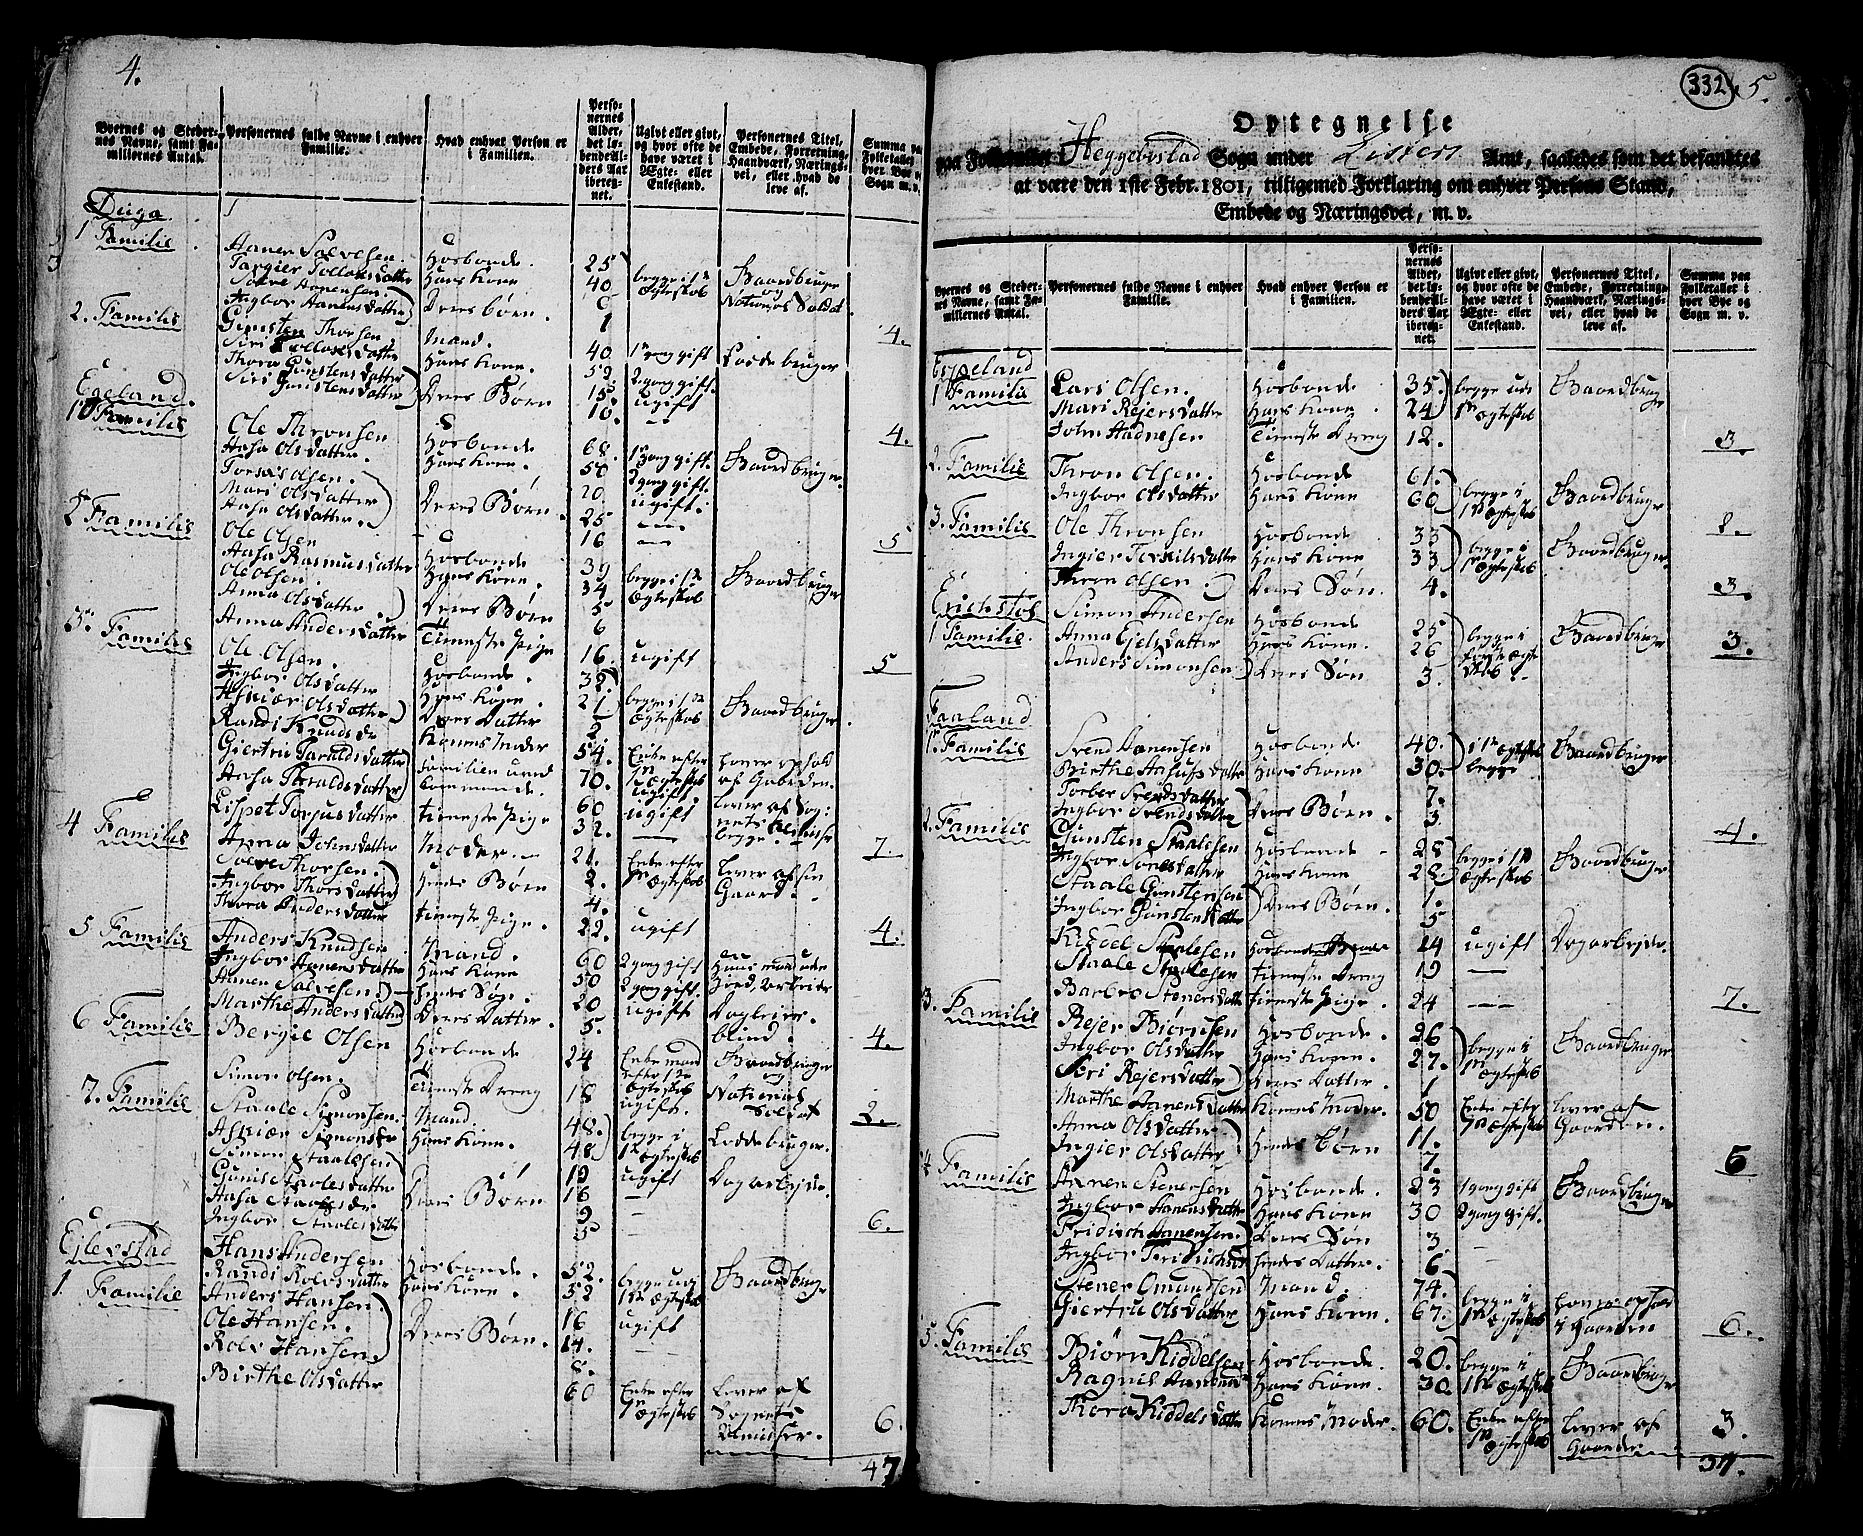 4.
Byernes og Steder-
nes Navne, samt Fa-
miliernes Antal.
Personernes fulde Navne i enhver
Familie.
Hvad enhver Person er
i Familien.
Perso-
nernes
Alder,
det lø-
bende Al-
ders Aar
ibereg-
net.
Ugivt eller givt,
og hvor ofte de
have været i
Ægte- eller
Enkestand.
Personernes Titel,
Embede, Forretning,
Haandværk, Nærings-
vei, eller hvad de
leve af.
Summa paa
Folketallet i
hver Bye og
Sogn m. v.
1 Familie
Aanen Salvesen. Hosbonde. 25
Targier Tollaksdatter Hans Kone 40 begge i 1te Ægteskab Gaardbruger og National Soldat
Salve Aanensen
Ingbor Aanensdatter Deres børn. 1 4.
2. Familie
Gunsten Thorsen Mand. 40 1te gang gift Lodde bruger
Siri Tollaksdatter Hans Kone. 52 2 gang gift
Thora Gunstensdatter Deres Børn 15 ugift
Siri Gunstensdatter 10. — 4.
Egeland.
1 Familie
Ole Thronsen Hosbonde 68. 1te gang gift. Gaardbruger.
Aasa Olsdatter. Hans Kone. 50 2 gang gift.
Olsen. 20. ugift.
Mari Olsdatter Deres Børn. 25 —
Aasa Olsdatter. 16 — 5
2 Familie
Ole Olsen Hosbonde 39 begge i 1te Ægteskab Gaardbruger
Aasa Rasmusdatter Hans Kone. 34
Ole Olsen. Deres Børn 5
Anna Olsdatter. 6
Anna Andersdatter Tieneste Pige 16. ugift 5
3. Familie
Ole Olsen. Hosbonde. 32. begge i 1te Ægteskab Gaardbruger.
Ingbor Olsdatter Hans Kone. 21.
Olsdatter Deres Datter 2
Randi Knudsdr Konens Moder 54. Enke efter 1te Ægteskab
Giertru Taraldsdatter Familien 70. ugift
Aasa Taraldsdatter 60 ugift
Lispet Torjusdatter tieneste Pige 32. — 7.
4 Familie
Anna Johnsdatter Moder. — 21. Enke efter 1te Ægteskab Lever af sin Gaard. —
Salve Thorsen. Hendes Børn 2.
Ingbor Thorsdatter 4.
Thora Andersdatter tieneste Pige. 22. ugift 4.
5 Familie
Anders Knudsen Mand. 60 2 gang gift Huusmand uden Jord, Arbeider
Ingbor Aanensdatter Hans Kone 50 2 gang gift.
Aanen Salvesen Hendes Søn. 20 ugift
Marthe Andersdatter Deres Datter. 5. blind. 4.
6 Familie
Bergie Olsen Hosbonde 24 Enkemand efter 1te Ægteskab Gaardbruger og National Soldat
Simon Olsen. Tieneste Dreng 18 ugift. 2.
7. Familie
Staale Simonsen. Mand. 48. begge i 1te Ægteskab Loddebruger.
Simonsdr Hans Kone. 48
Simon Staalesen 19 ugift Dagarbejder.
Gunild Staalesdatter Deres Børn 16 —
Aasa Staalesdr 9
Ingbor Staalesdatter 5 — 6.
Ejlevstad
1. Familie
Hans Andersen Hosbonde. 52. begge udi 1te Ægteskab Gaardbruger
Randi Rolvsdatter Hans Kone. 52
Anders Hansen 16 ugift
Ole Hansen. Deres Børn. 14.
Rolv Hansen 8.
Birthe Olsdatter 60 Enke efter 1te Ægteskab Lever af Sognets Almisser. 6.
47
332 5.
Optegnelse
paa Folketallet i Heggebostad Sogn under Listers Amt, saaledes som det befandtes
at være den 1ste Febr. 1801, tilligemed Forklaring om enhver Persons Stand,
Embede og Næringsvei, m. v.
Byernes og Steder-
nes Navne, samt Fa-
miliernes Antal.
Personernes fulde Navne i enhver
Familie.
Hvad enhver Person er
i Familien.
Perso-
nernes
Alder,
det lø-
bende Al-
ders Aar
ibereg-
net.
Ugivt eller givt,
og hvor ofte de
have været i
Ægte- eller
Enkestand.
Personernes Titel,
Embede, Forretning,
Haandværk, Nærings-
vei, eller hvad de
leve af.
Summa paa
Folketallet i
hver Bye og
Sogn m. v.
Espeland
1 Familie
Lars Olsen. Hosbonde 35. begge udi 1te Ægteskab Gaardbruger
Mari Rejersdatter Hans Kone. 24
John Aadnesen Tieneste Dreng 12. 3
2. Familie
Thron Olsen. Hosbonde 61. begge i 1te Ægteskab Gaardbruger
Ingbor Olsdatter Hans Kone 60 2.
3. Familie
Ole Thronsen Hosbonde 33 begge i 1te Ægteskab Gaardbruger
Ingier Terkilsdatter Hans Kone 33
Thron Olsen. Deres Søn. 4. 3.
Erichstøl
1 Familie.
Simon Andersen Hosbonde 25 begge i første Ægteskab. Gaardbruger
Anna Ejelsdatter Hans Kone. 26
Anders Simonsen Deres Søn 3. 3.
Faaland
1. Familie
Svend Aanensen Hosbonde 40. i 1te Ægteskab begge Gaardbruger
Birthe Aasulsdatter Hans Kone 30.
Torber Svendsdatter Deres Børn. 7.
Ingbor Svendsdatter 3. 4.
2. Familie
Gunsten Staalesen Hosbonde 28 begge i 1te Ægteskab Gaardbruger
Ingbor Hans Kone 28.
Staale Gunstensen Deres Børn. 1.
Ingbor Gunstensdatter 5
Kiddel Staalesen Hosbondes Broder 24 ugift Dagarbejder.
Staale Staalesen tieneste Dreng 19 —
Barbro Stenersdatter tieneste Pige. 24 — 7.
3. Familie
Rejer Biørnsen Hosbonde. 26 begge i 1te Ægteskab Gaardbruger
Ingbor Olsdatter Hans Kone. 27.
Siri Rejersdatter Deres Datter. 1
Marthe Aanensdatter Konens Moder. 50 Enke efter 1te Ægteskab Lever af Gaarden.
Anna Olsdatter Hendes Børn 11.
Ingier Olsdatter 7. 6
4 Familie
Aanen Stenersen Hosbonde. 23 1 gang gift Gaardbruger
Ingbor Aanensdatter Hans Kone. 30 2 gang gift.
Fridrich Aanensen. Deres Søn 3 —
Ingbor Fridrichsdr Hendes Datter. 6
Stener Omundsen Mand. 74. begge i 1te Ægteskab haver ophold i Gaarden
Giertru Olsdatter Hans Kone. 67. 6.
5. Familie
Biørn Kiddelsen Hosbonde. 20. begge i 1te Ægteskab Gaardbruger
Ragnil Hans Kone. 30.
Thora Kiddelsdatter Konens Moder. 60. Enke efter 1te Ægteskab Lever af Gaarden 3.
37.